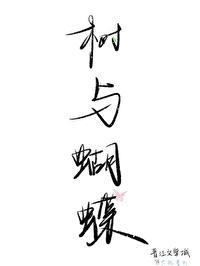 树
与
蝴
蝶
晋江文学城